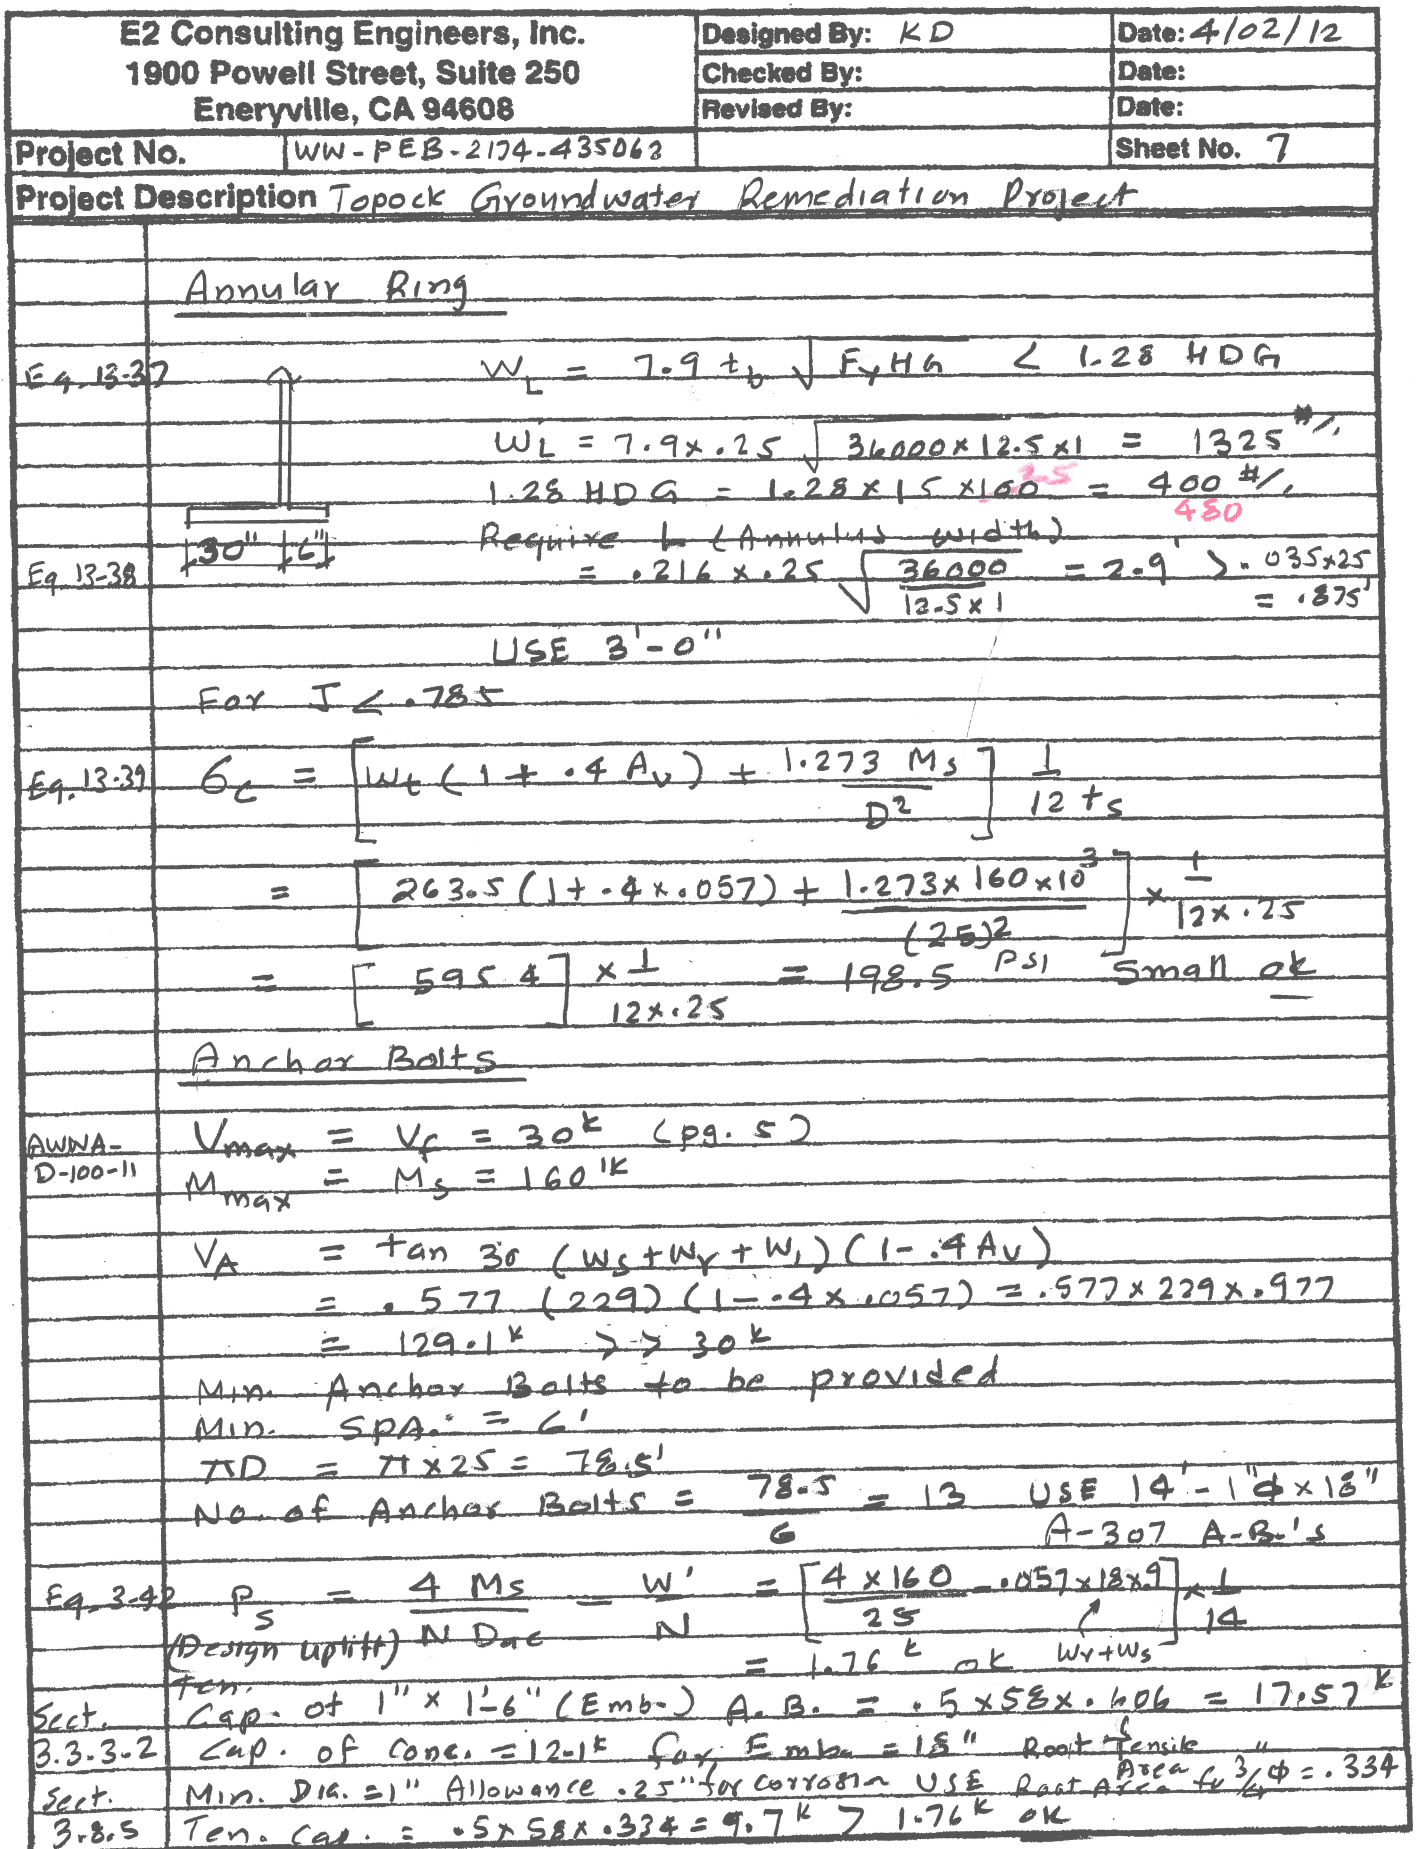 E2 Consulting Engineers, Inc.
1900 Powell Street, Suite 250
Eneryville, CA 94608
Designed By: KD
Date: 4/02/12
Checked By:
Date:
Revised By:
Date:
Project No. WW-PEB-2174-435063
Sheet No. 7
Project Description Topock Groundwater Remediation Project
Annular Ring
Eq. 13-37
W_L = 7.9 t_b √(F_y H G) < 1.28 HDG
W_L = 7.9 x .25 √(36000 x 12.5 x 1) = 1325 #/'
1.28 HDG = 1.28 x 15 x 100 = 400 #/'
25
480
30" 6"
Require L (Annulus width)
Eq 13-38
= .216 x .25 √(36000 / 12.5 x 1) = 2.9' > .035x25
= .875'
USE 3'-0"
For J < .785
Eq. 13-39
σ_c = [W_t (1 + .4 A_v) + 1.273 M_s / D²] 1 / 12 t_s
= [263.5 (1 + .4 x .057) + 1.273 x 160 x 10³ / (25)²] x 1 / 12 x .25
= [595.4] x 1 / 12 x .25 = 198.5 PSI Small ok
Anchor Bolts
AWWA-
D-100-11
V_max = V_f = 30^k (pg. 5)
M_max = M_s = 160 'K
V_A = tan 30 (W_s + W_r + W_1) (1 - .4 A_v)
= .577 (229) (1 - .4 x .057) = .577 x 229 x .977
= 129.1^k >> 30^k
Min. Anchor Bolts to be provided
Min. SPA. = 6'
πD = π x 25 = 78.5'
No. of Anchor Bolts = 78.5 / 6 = 13 USE 14 - 1"ϕ x 18"
A-307 A.B.'s
Eq. 3-42
P_s = 4 M_s / N D_ac - W' / N = [4 x 160 / 25 - .057 x 18 x .9] x 1 / 14
(Design uplift)
Wr+Ws
= 1.76^k ok
Sect.
3.3.3.2
Ten. Cap. of 1" x 1'-6" (Emb.) A.B. = .5 x 58 x .606 = 17.57^k
Cap. of Conc. = 12.1^k for Emb. = 18" Root Tensile Area
Sect.
3.8.5
Min. Dia. = 1" Allowance .25" for corrosion USE Root Area for 3/4"ϕ = .334
Ten. Cap. = .5 x 58 x .334 = 9.7^k > 1.76^k OK